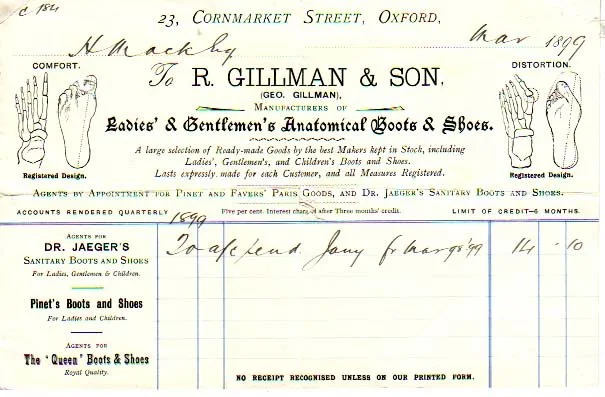 23, CORNMARKET STREET, OXFORD,
Mar 1899
H Mack Esq
COMFORT.
DISTORTION.
To R. GILLMAN & SON,
(GEO. GILLMAN),
MANUFACTURERS OF
Ladies' & Gentlemen's Anatomical Boots & Shoes.
A large selection of Ready-made Goods by the best Makers kept in Stock, including
Ladies', Gentlemen's, and Children's Boots and Shoes.
Lasts expressly made for each Customer, and all Measures Registered.
Registered Design.
Registered Design.
AGENTS BY APPOINTMENT FOR PINET AND FAVERS' PARIS GOODS, AND DR. JAEGER'S SANITARY BOOTS AND SHOES.
ACCOUNTS RENDERED QUARTERLY
Five per cent. Interest charged after Three months' credit.
LIMIT OF CREDIT—6 MONTHS.
1899
AGENTS FOR
DR. JAEGER'S
SANITARY BOOTS AND SHOES
For Ladies, Gentlemen & Children.
To a/c 14 - 10
Pinet's Boots and Shoes
For Ladies and Children.
AGENTS FOR
The "Queen" Boots & Shoes
Royal Quality.
NO RECEIPT RECOGNISED UNLESS ON OUR PRINTED FORM.